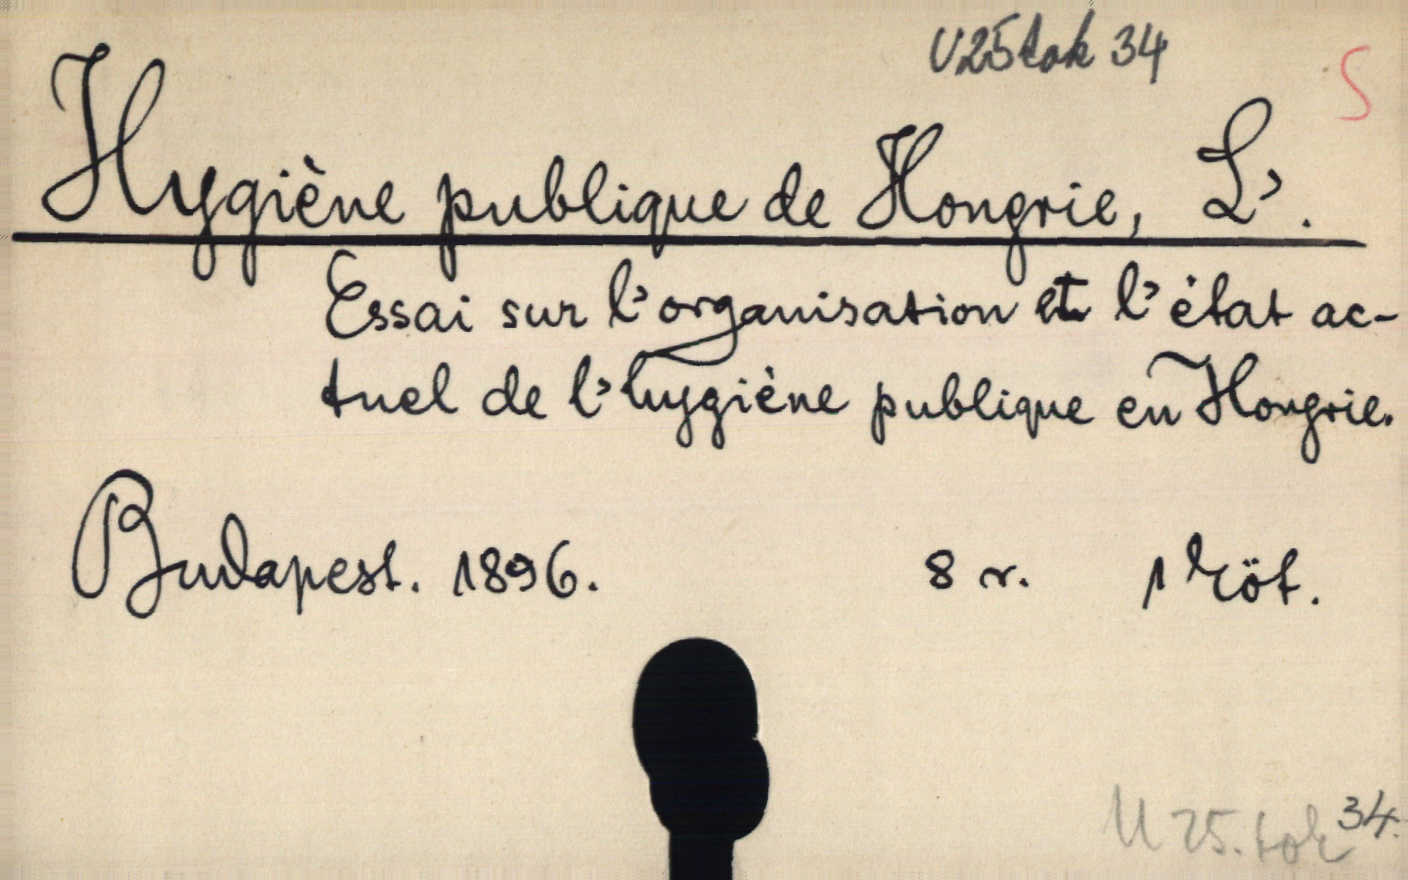 U25tok 34
S
Hygiène publique de Hongrie, L'.
Essai sur l'organisation et l'état ac-
tuel de l'hygiène publique en Hongrie.
Budapest. 1896. 8 r. 1 köt.
U 25. tok 34.